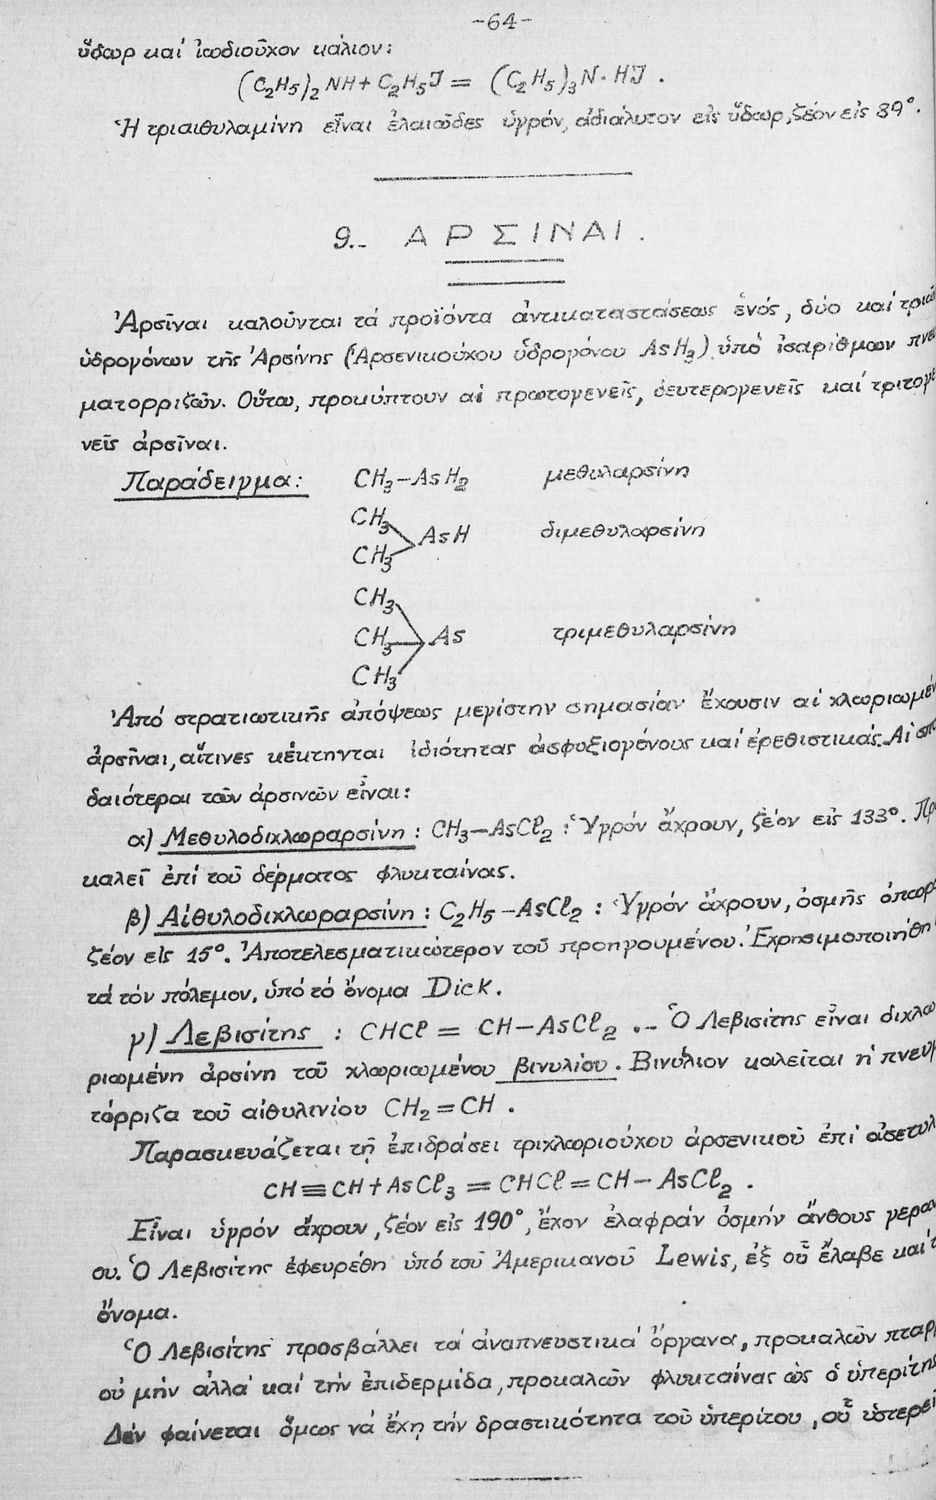 -64-
ὕδωρ καί ἰωδιοῦχον κάλιον:
(C₂H₅)₂ NH + C₂H₅J = (C₂H₅)₃N· HJ .
Ἡ τριαιθυλαμίνη εἶναι ἐλαιῶδες ὑγρόν, ἀδιάλυτον εἰς ὕδωρ, ζέον εἰς 89°.
9.- ΑΡΣΙΝΑΙ.
Ἀρσῖναι καλοῦνται τά προϊόντα ἀντικαταστάσεως ἑνός, δύο καί
ὑδρογόνων τῆς Ἀρσίνης (Ἀρσενικούχου ὑδρογόνου AsH₃) ὑπό ἰσαρίθμων
ματορριζῶν. Οὕτω, προκύπτουν αἱ πρωτογενεῖς, δευτερογενεῖς καί
νεῖς ἀρσῖναι.
Παράδειγμα: CH₃-AsH₂ μεθυλαρσίνη
CH₃
AsH διμεθυλαρσίνη
CH₃
CH₃
CH₃ As τριμεθυλαρσίνη
CH₃
Ἀπό στρατιωτικῆς ἀπόψεως μεγίστην σημασίαν ἔχουσιν αἱ
ἀρσῖναι, αἵτινες κέκτηνται ἰδιότητας ἀσφυξιογόνους καί ἐρεθιστικάς. Αἱ
δαιότεραι τῶν ἀρσινῶν εἶναι:
α) Μεθυλοδιχλωραρσίνη: CH₃-AsCl₂ : Ὑγρόν ἄχρουν, ζέον εἰς 133°.
καλεῖ ἐπί τοῦ δέρματος φλυκταίνας.
β) Αἰθυλοδιχλωραρσίνη: C₂H₅-AsCl₂ : Ὑγρόν ἄχρουν, ὀσμῆς
ζέον εἰς 15°. Ἀποτελεσματικώτερον τοῦ προηγουμένου. Ἐχρησιμοποιήθη
τά τόν πόλεμον, ὑπό τό ὄνομα Dick.
γ) Λεβισίτης : CHCl = CH-AsCl₂ .- Ὁ Λεβισίτης εἶναι
ριωμένη ἀρσίνη τοῦ χλωριωμένου βινυλίου. Βινύλιον καλεῖται ἡ
τόρριζα τοῦ αἰθυλινίου CH₂ = CH .
Παρασκευάζεται τῇ ἐπιδράσει τριχλωριούχου ἀρσενικοῦ ἐπί
CH≡CH + AsCl₃ = CHCl = CH- AsCl₂ .
Εἶναι ὑγρόν ἄχρουν, ζέον εἰς 190°, ἔχον ἐλαφράν ὀσμήν ἄνθους
ου. Ὁ Λεβισίτης ἐφευρέθη ὑπό τοῦ Ἀμερικανοῦ Lewis, ἐξ οὗ ἔλαβε καί
ὄνομα.
Ὁ Λεβισίτης προσβάλλει τά ἀναπνευστικά ὄργανα, προκαλῶν
οὐ μήν ἀλλά καί τήν ἐπιδερμίδα, προκαλῶν φλυκταίνας ὡς ὁ ὑπερίτης
Δέν φαίνεται ὅμως νά ἔχῃ τήν δραστικότητα τοῦ ὑπερίτου, οὗ